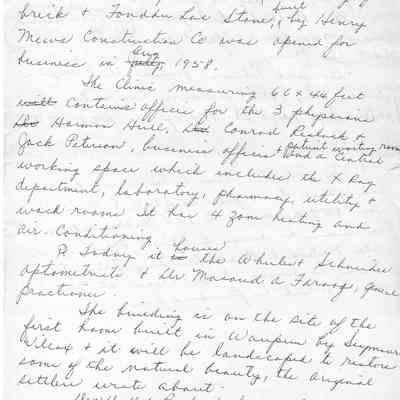 built
brick & Fonddu Lac Stone, by Henry
Mews Construction Co was opened for
Aug
business in July, 1958.
The Clinic measuring 66 x 44 feet
will contains offices for the 3 physicians
Drs Harmon Hull, Conrad Reslock &
patient waiting room
Jack Peterson, business office & and a central
working space which includes the X Ray
department, laboratory, pharmacy, utility &
work rooms It has 4 zone heating and
air-conditioning
houses
P. Today it is the Wheeler Schneider
optometrists & Dr Masood A Farooqi, general
practioner.
The building is on the site of the
first home built in Waupun by Seymour
Wilcox & it will be landscaped to restore
some of the natural beauty, the original
settlers wrote about.